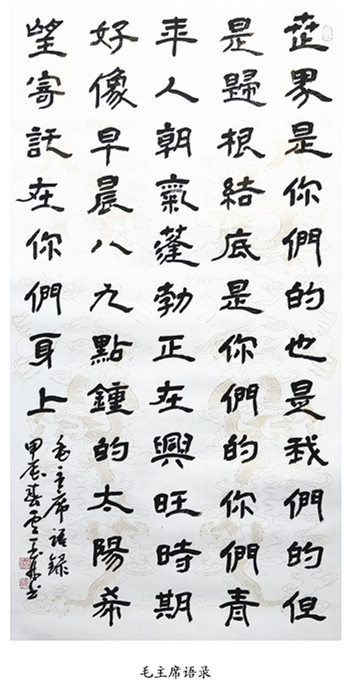 世界是你們的也是我們的但
是歸根結底是你們的你們青
年人朝氣蓬勃正在興旺時期
好像早晨八九點鍾的太陽希
望寄託在你們身上
毛主席语録
甲辰春
毛主席语录